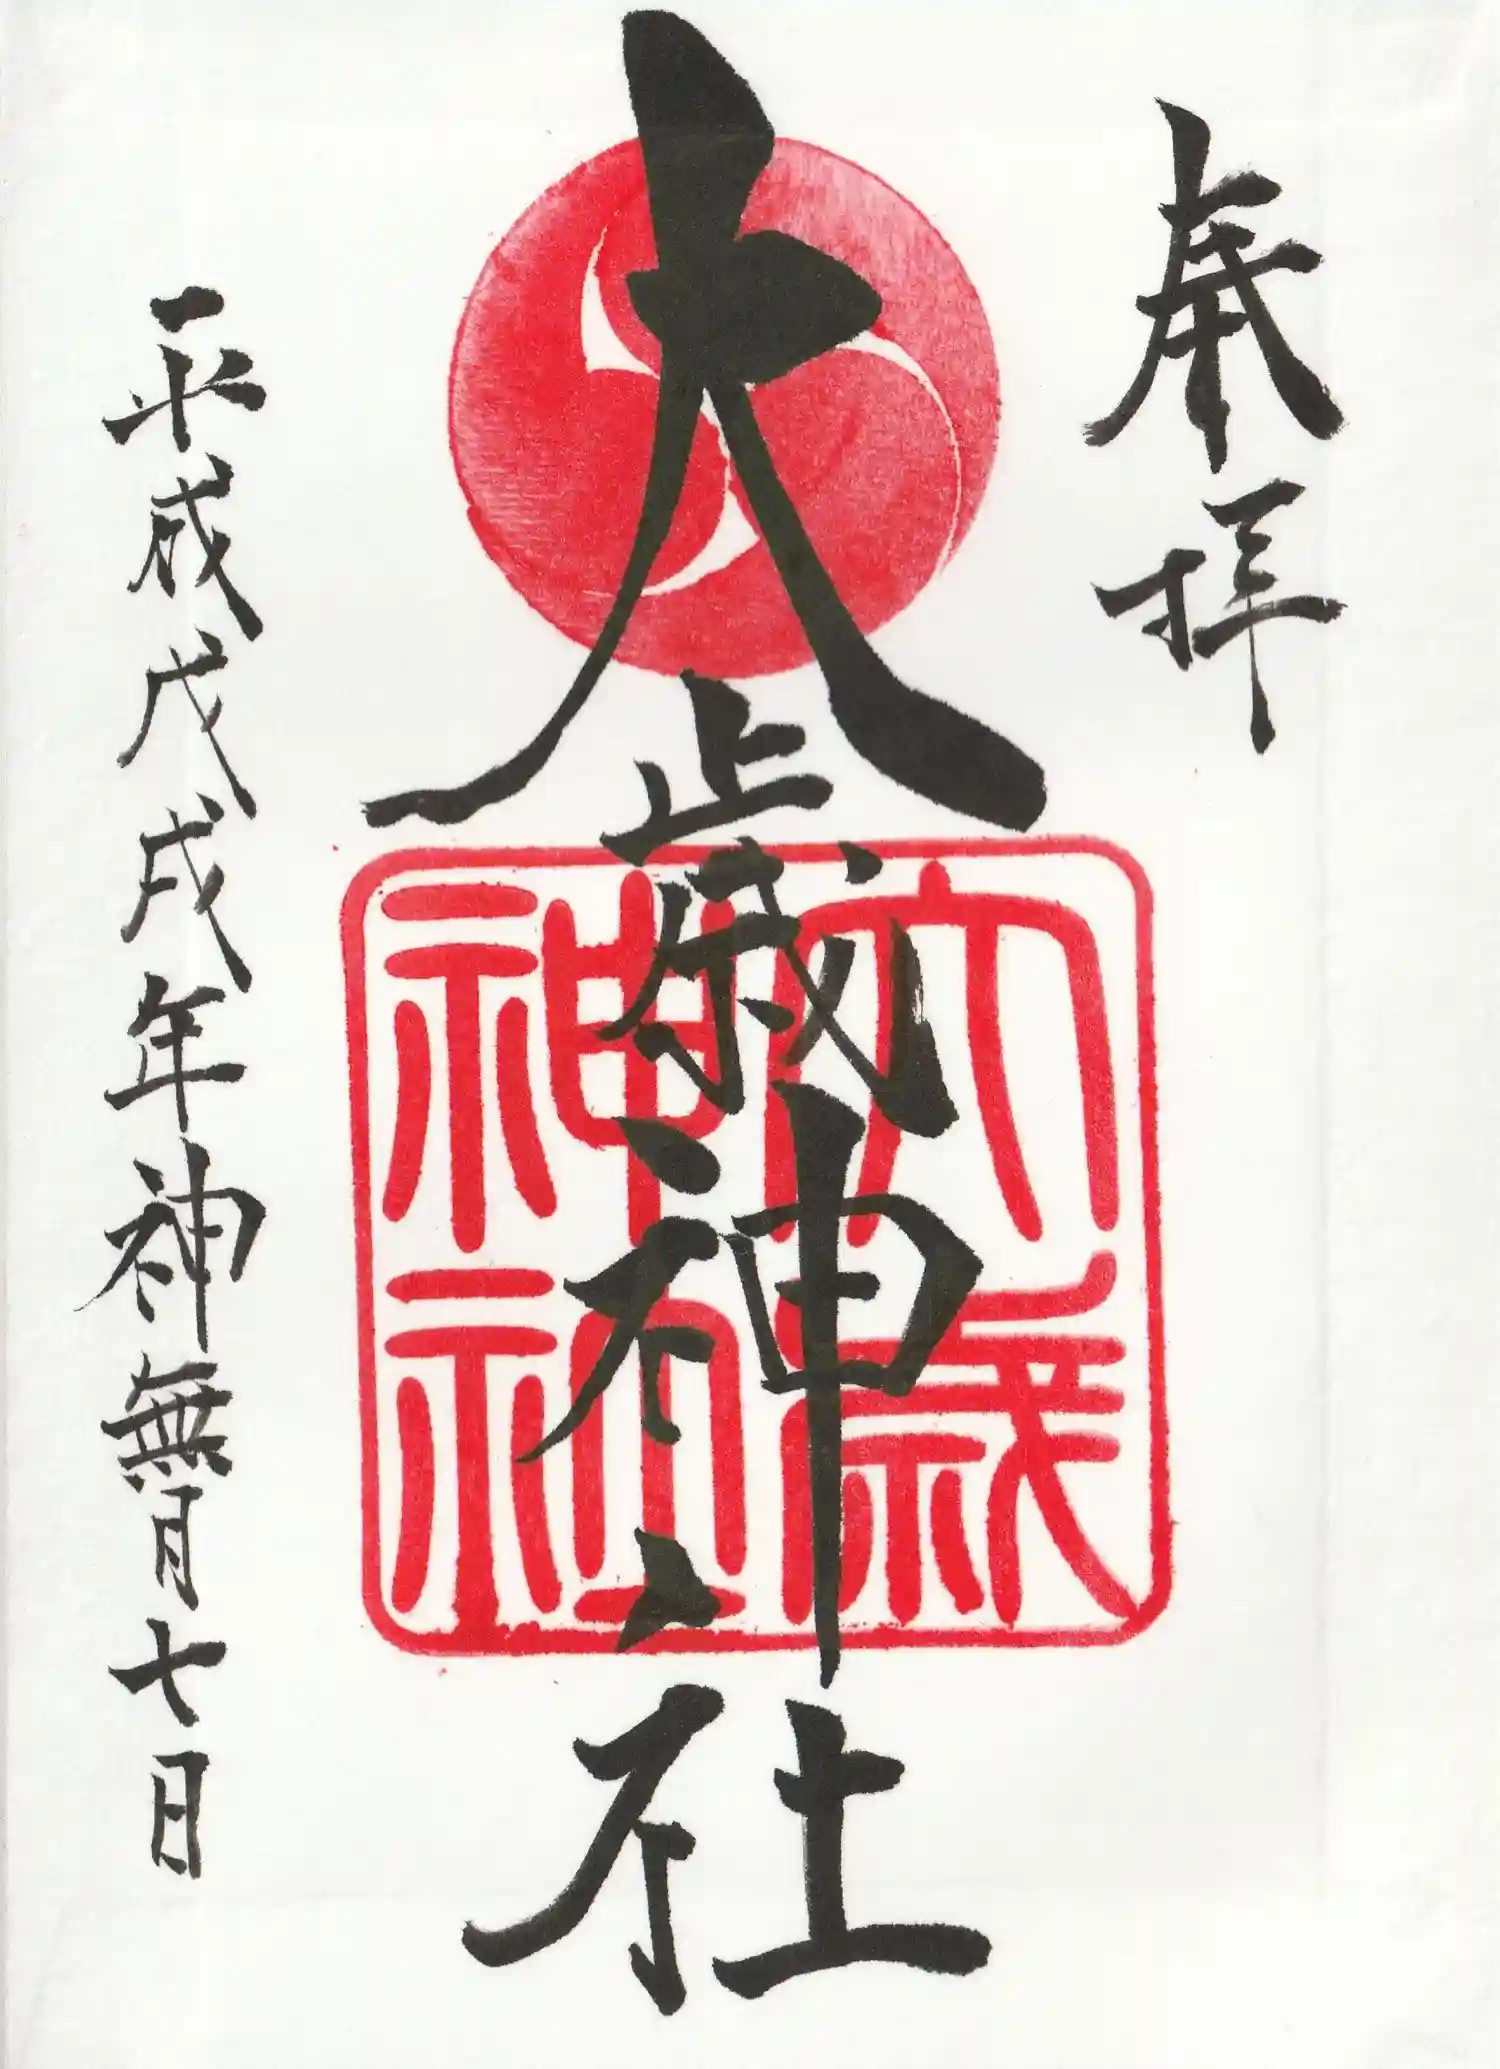 奉拝
大歳神社
大歳神社
平成戊戌年神無月七日